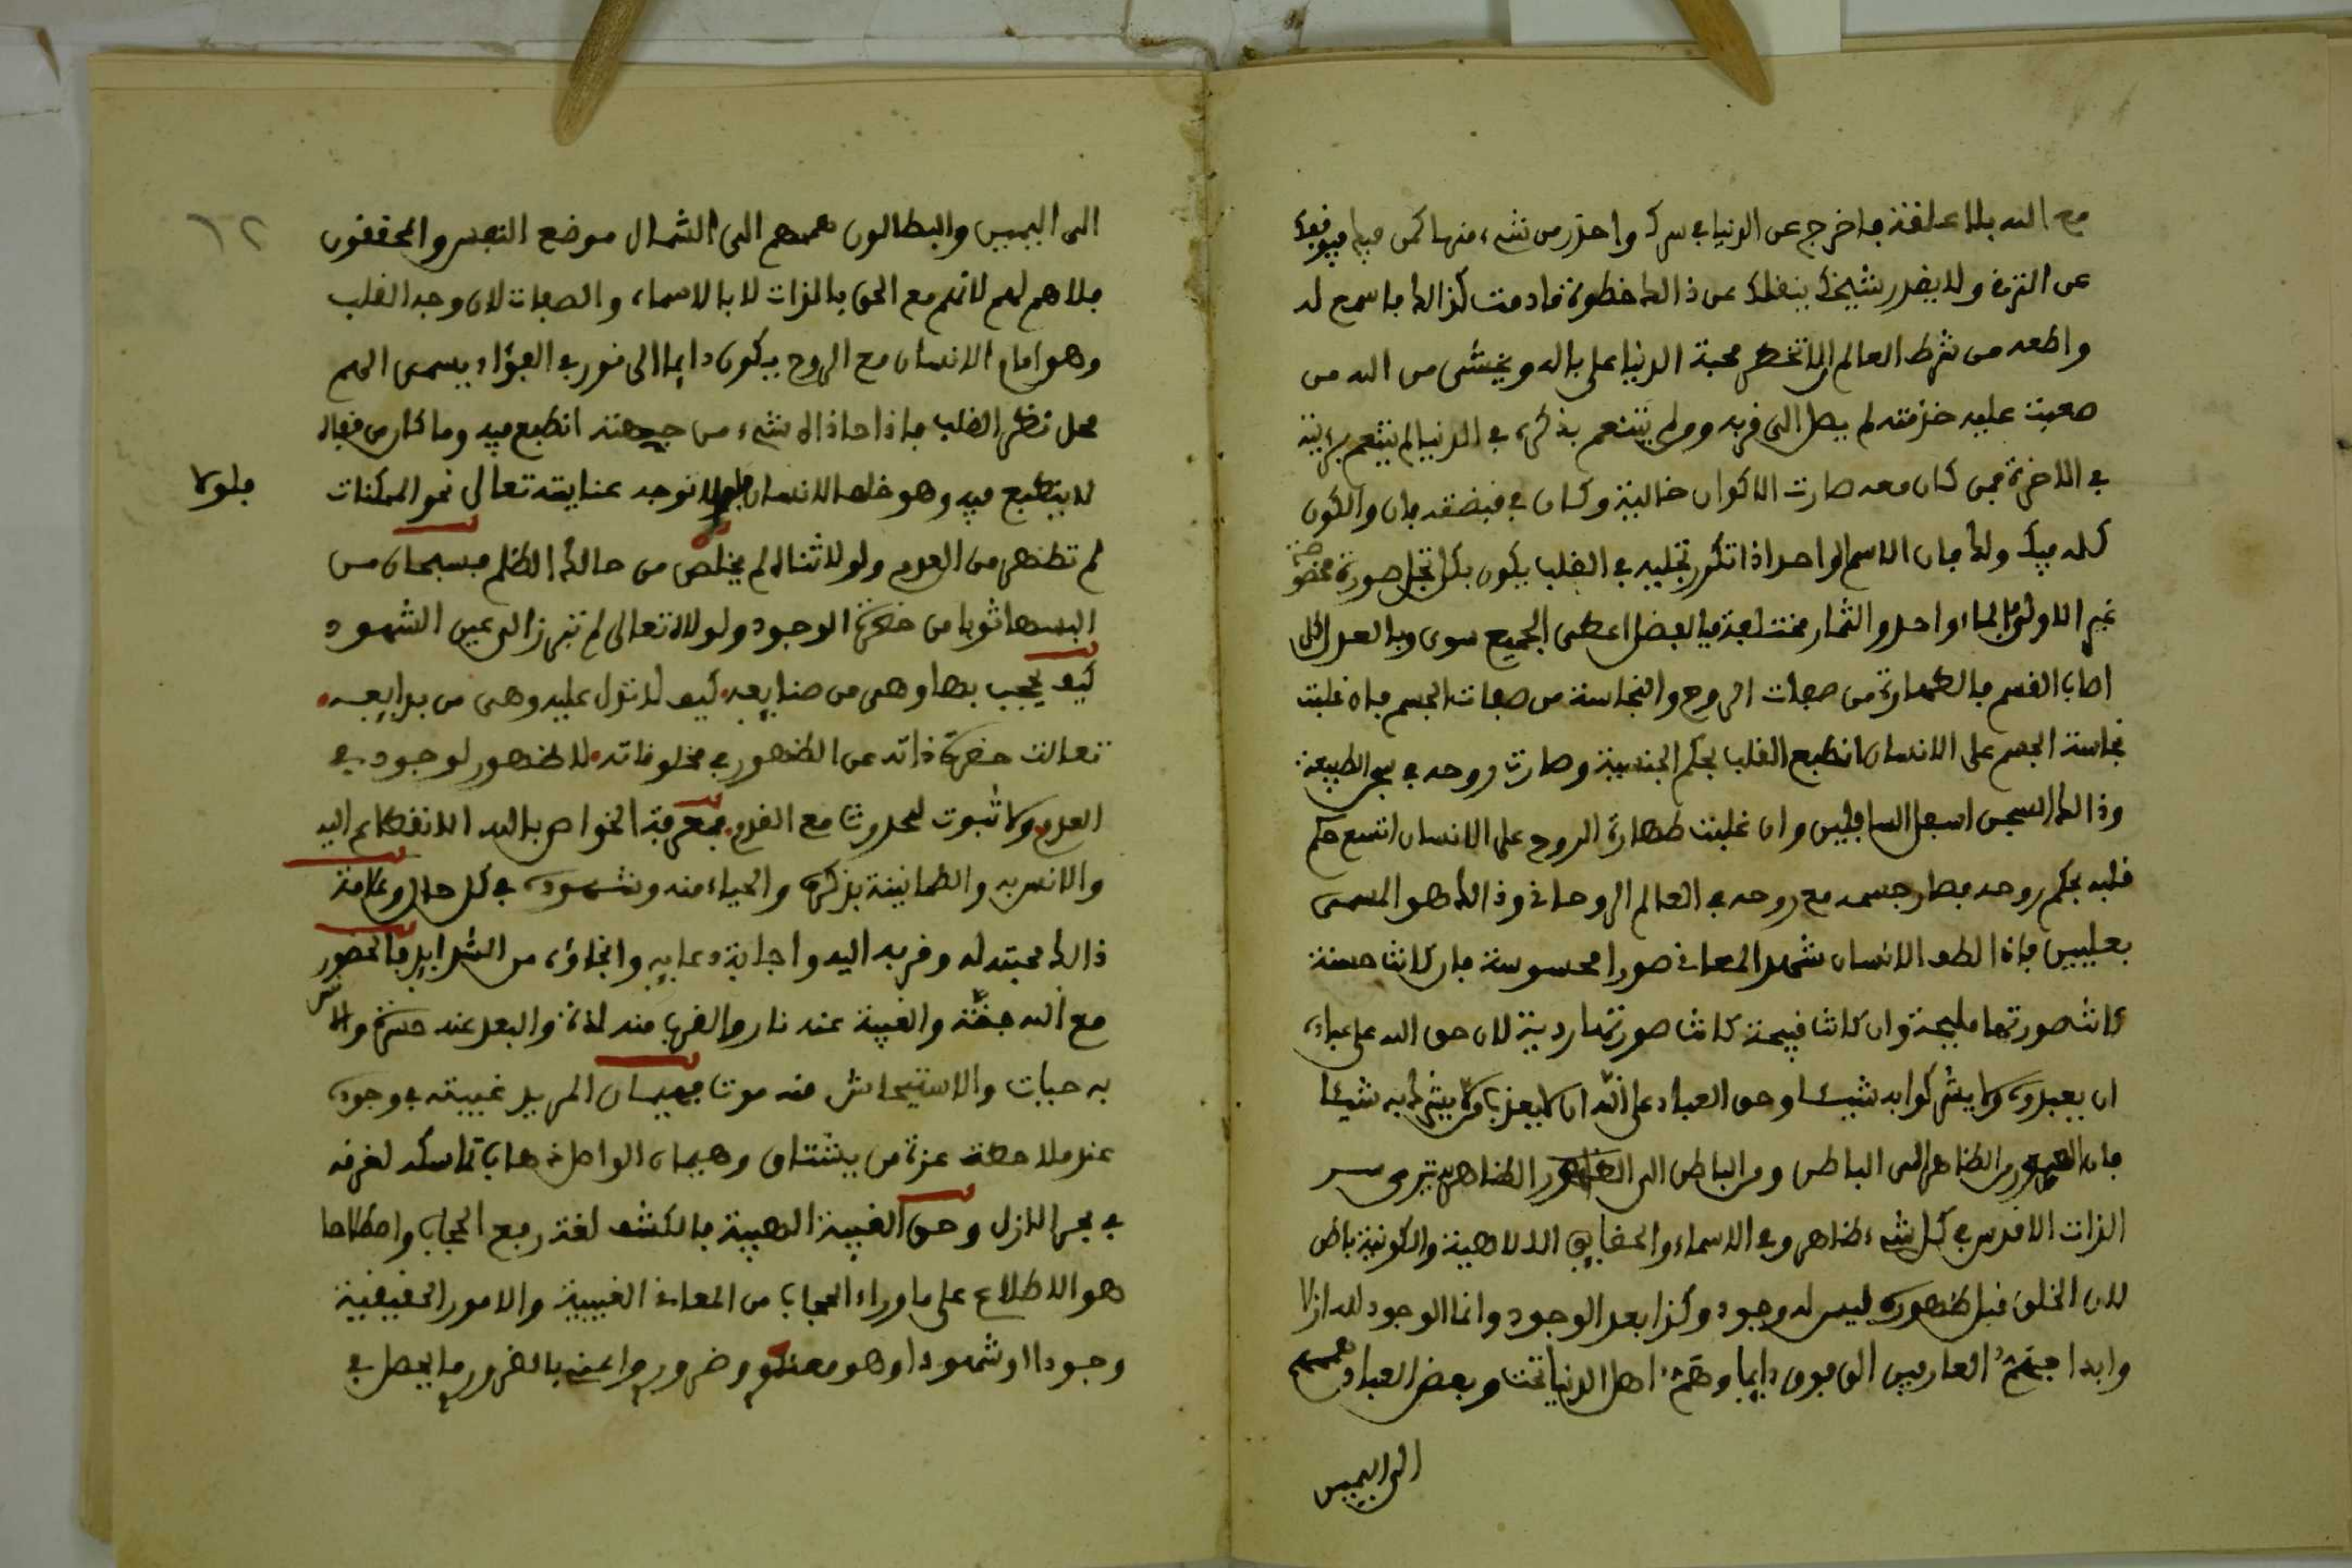 مع الله بلا علاقة فاخرج عن الدنيا في سرك واحذر من شيء منها كمن فيها فيوقفك
عن الترقي ولا يقدر شيخك ينقلك عن ذالك خطوة ما دمت كذالك فاسمع له
واطعه من شرط العالم الا تخطر محبة الدنيا على باله ويخشى من الله من
صعبت عليه خدمته لم يصل الى قربه ومن لم يتنعم بذكره في الدنيا لم يتنعم برءيته
في الاخرة فمن كان معه صارت الاكوان خالية وكان في قبضته فان والكون
كله فيك ولك فان الاسم الواحد اذا تكرر تجليه في القلب يكون بكل تجل صورة مخصوصة
غير الاولى فالماء واحد والثمار مختلفة فبالفضل اعطى الجميع سوى وبالعدل الكل
اصاب القسم فالطهارة من صفات الروح والنجاسة من صفات الجسم فان غلبت
نجاسة الجسم على الانسان انطبع القلب بحكم الجنسية وصارت روحه في سجن الطبيعة
وذالك السجن اسفل السافلين وان غلبت طهارة الروح على الانسان اتسع حكم
قلبه بحكم روحه فصار جسمه مع روحه في العالم الروحاني وذالك هو المسمى
بعليين فاذا لطف الانسان شهد المعاني صورا محسوسة فان كانت حسنة
كانت صورتها مليحة وان كانت قبيحة كانت صورتها ردية لان حق الله على عباده
ان يعبدوه ولا يشركوا به شيئا وحق العباد على الله ان لا يعذب من لا يشرك به شيئا
فان من الظاهر الى الباطن ومن الباطن الى الظاهر ترى سر
الذات الاقدس في كل شيء ظاهر وفي الاسماء والحقايق الالاهية والكونية باطن
لان الخلق قبل ظهوره ليس له وجود وكذا بعد الوجود وانما الوجود لله ازلا
وابدا فهمة العارفين الى فوق دايما وهمة اهل الدنيا تحت وبعض العباد هممهم
الى اليمين
١٢
الى اليمين والبطالون هممهم الى الشمال موضع النفس والمحققون
فلا هم لهم لانهم مع الحق بالذات لا بالاسماء والصفات لان وجه القلب
وهو امام الانسان مع الروح يكون دايما الى نور في الفؤاد يسمى الهم
محل نظر القلب فاذا حاذاه شيء من جهته انطبع فيه وما كان من قفاه
لا ينطبع فيه وهو خلف الانسان توجه عنايته تعالى نحو الممكنات
فلولا
لم تظهر من العدم ولولا ثناله لم يخلص من حالك الظلم فسبحان من
البسها ثوبا من حضرة الوجود ولولاه تعالى لم تبرز الى عين الشهود
كيف يحجب بها وهي من صنايعه كيف لا تدل عليه وهي من بدايعه
تعالت حضرة ذاته عن الظهور في مخلوقاته لا ظهور لوجود في
العدم ولا ثبوت لحدوث مع القدم فمعرفة الخواص بالله الانقطاع اليه
والانس به والطمانينة بذكره والحياء منه وشهوده في كل حال وعلامة
ذالك محبته له وقربه اليه واجابة دعايه وانجاؤه من الشدايد فالحضور
مع الله جنة والغيبة عنه نار والقرب منه لذة والبعد عنه حسرة والانس
به حيات والاستيحاش منه موت فهيمان المريد غيبته في وجوده
عند ملاحظة عزة من يشتاق وهيمان الواصل ذهاب تماسكه لغرقه
في بحر الازل وحق الغيبة الهيبة فالكشف لغة رفع الحجاب واصطلاحا
هو الاطلاع على ما وراء الحجاب من المعاني الغيبية والامور الحقيقية
وجودا او شهودا وهو معنوي وضروري واعني بالضروري ما يحصل في